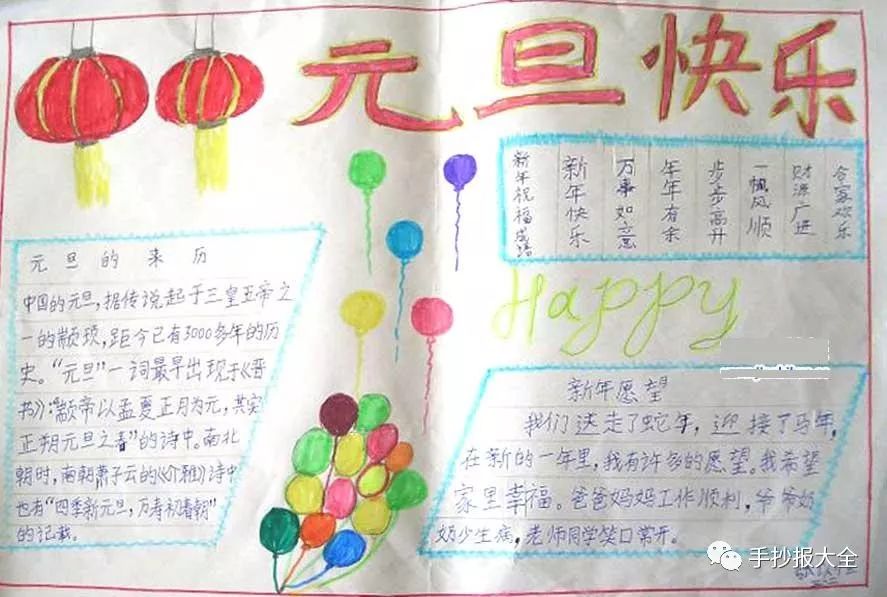 元旦快乐
新年祝福成语
新年快乐
万事如意
年年有余
步步高升
一帆风顺
财源广进
合家欢乐
元旦的来历
中国的元旦,据传说起于三皇五帝之
一的颛顼,距今已有3000多年的历
史。“元旦”一词最早出现于《晋
书》:“颛帝以孟夏正月为元,其实
正朔元旦之春”的诗中。南北
朝时,南朝萧子云的《介雅》诗中
也有“四季新元旦,万寿初春朝”
的记载。
Happy
新年愿望
我们送走了蛇年,迎接了马年,
在新的一年里,我有许多的愿望。我希望
家里幸福。爸爸妈妈工作顺利,爷爷奶
奶少生病,老师同学笑口常开。
手抄报大全